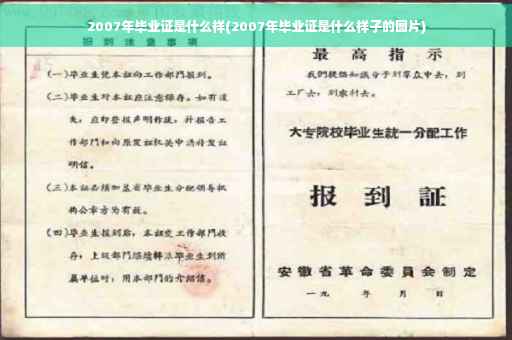 2007年毕业证是什么样(2007年毕业证是什么样子的图片)
报到注意事项
(一)毕业生凭本证向工作部门报到。
(二)毕业生对本证应注意保存。如有遗
失，应即登报声明作废，并报告工
作部门和向原发证机关申请补发证
明信。
(三)本证必须加盖省毕业生分配领导机
构公章方为有效。
(四)毕业生报到后，本证交工作部门收
存；上级部门
属单位时，用本部门的介绍信。
最高指示
我们提倡知识分子到群众中去，到
工厂去，到农村去。
大专院校毕业生統一分配工作
报到証
安徽省革命委員会制定
一九 年 月 日